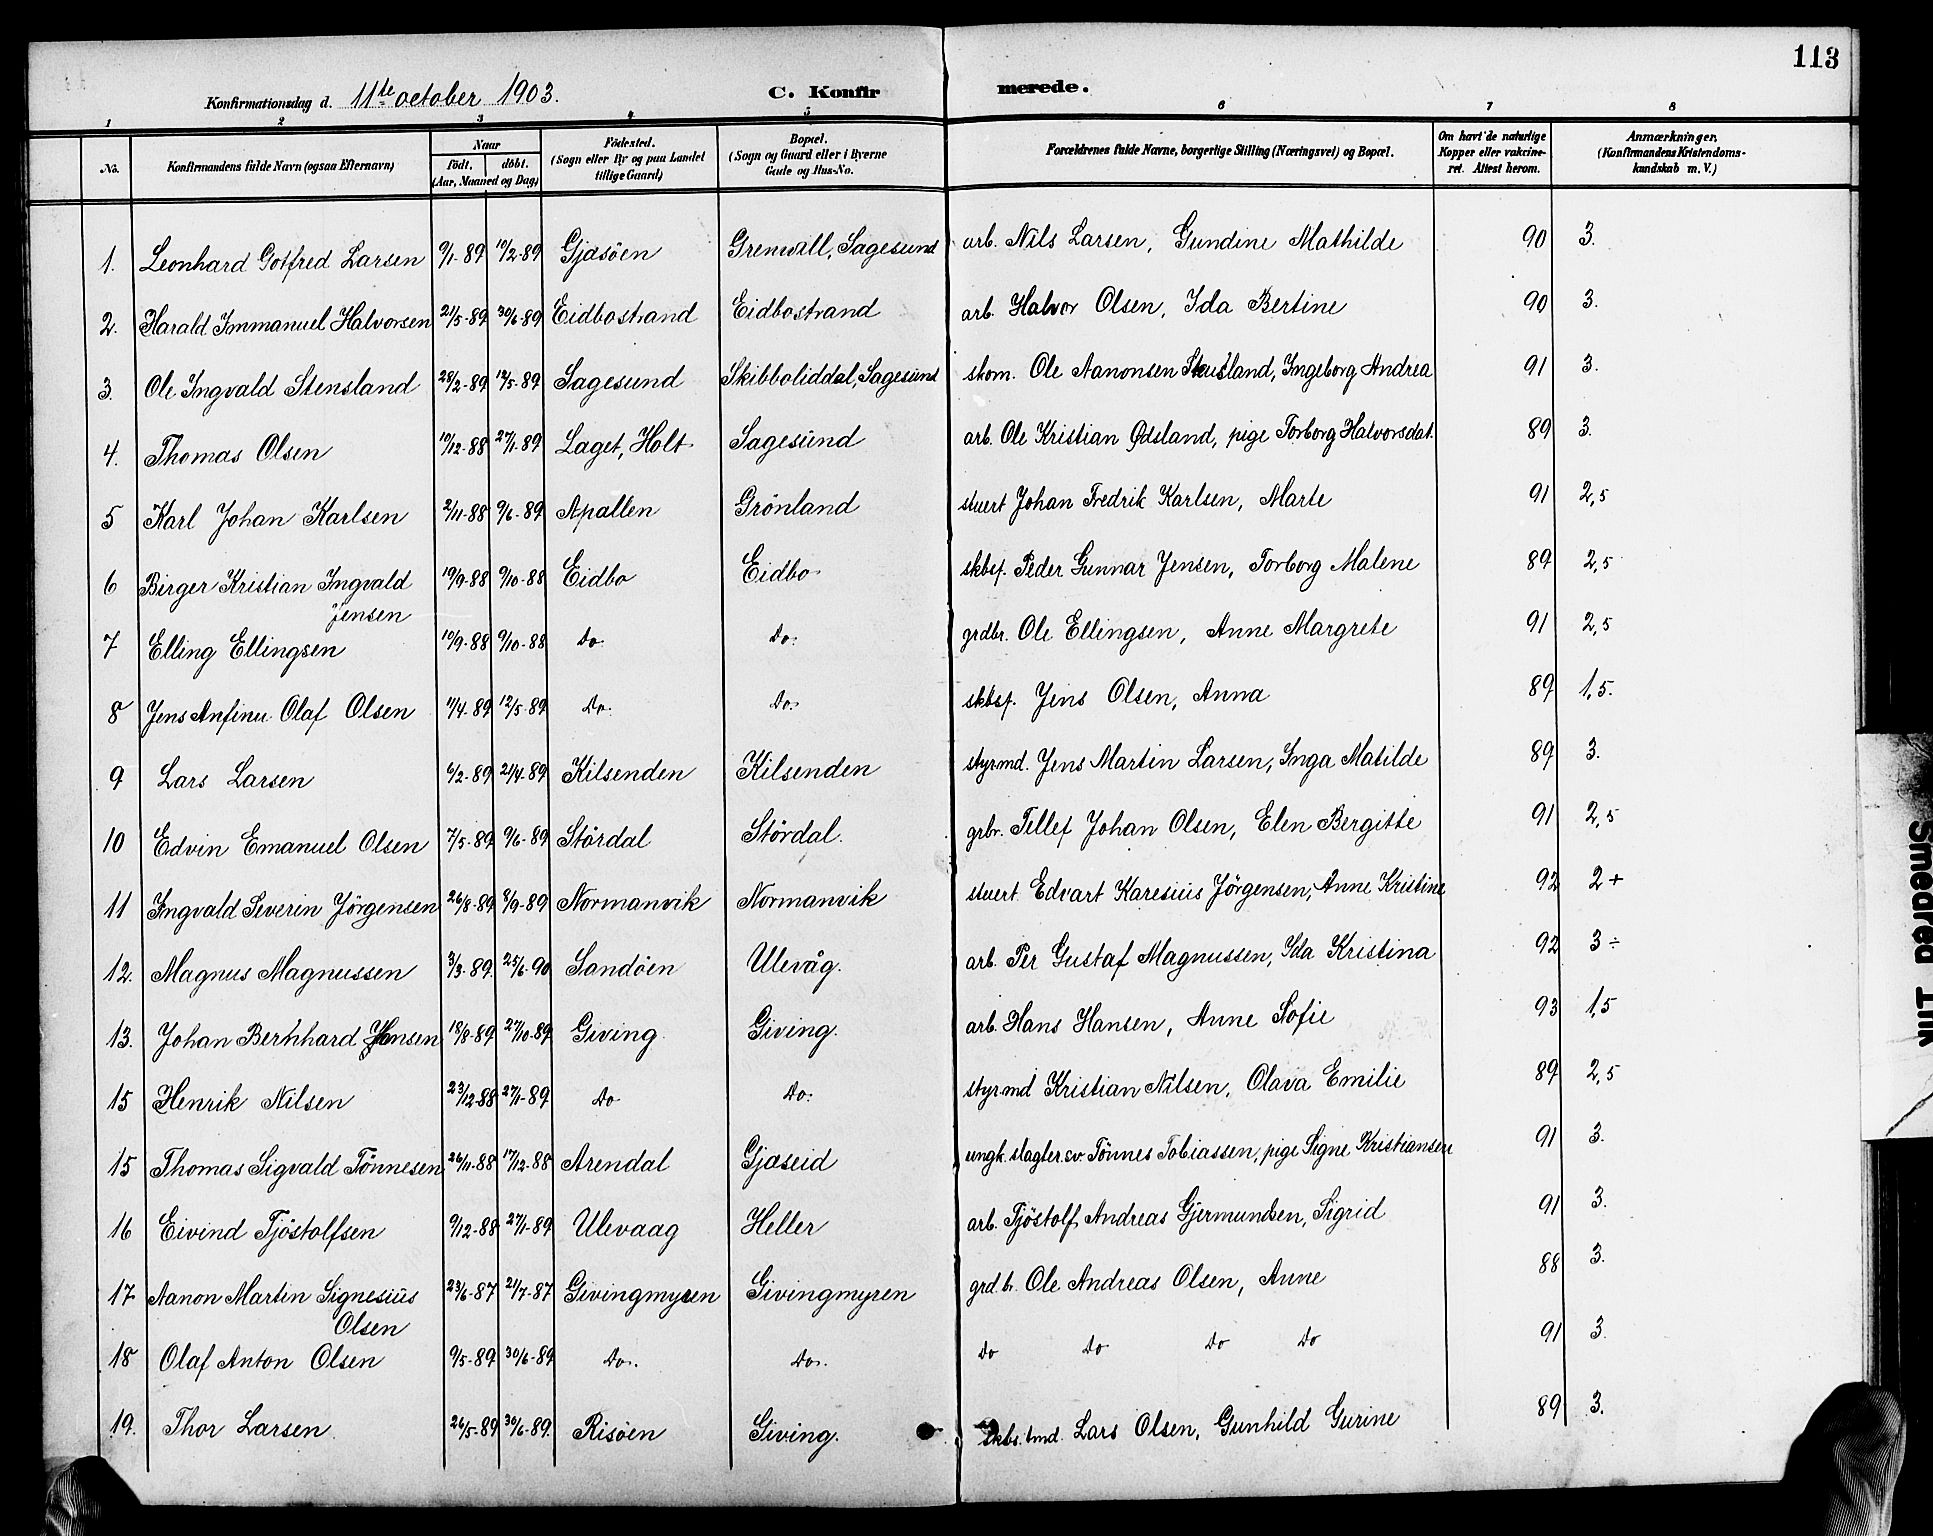 113
Konfirmationsdag d. 11te october 1903.
C. Konfirmerede.
1 2 3 4 5 6 7 8
No. Konfirmandens fulde Navn (ogsaa Efternavn) Naar født. døbt. (Aar, Maaned og Dag) Fødested. (Sogn eller By og paa Landet tillige Gaard) Bopæl. (Sogn og Gaard eller i Byerne Gade og Hus-No. Forældrenes fulde Navne, borgerlige Stilling (Næringsvei) og Bopæl. Om havt de naturlige Kopper eller vakcineret. Attest herom. Anmærkninger. (Konfirmandens Kristendomskundskab m. V.)
1. Leonhard Gotfred Larsen 9/1-89 10/2-89 Gjasöen Grenwill, Sagesund arb. Nils Larsen, Gundine Mathilde 90 3.
2. Harald Immanuel Halvorsen 21/5-89 30/6-89 Eidbostrand Eidbostrand arb. Halvor Olsen, Ida Bertine 90 3.
3. Ole Ingvald Stensland 28/2-89 12/5-89 Sagesund Skibboliddal, Sagesund skom. Ole Aanonsen Ingeborg Andrea 91 3.
4. Thomas Olsen 10/12-88 27/1-89 Laget, Holt Sagesund arb. Ole Kristian Ødsland, pige Torborg Halvorsdat. 89 3.
5 Karl Johan Karlsen 2/11-88 9/6-89 Apallen Grönland stuert Johan Fredrik Karlsen, Marte 91 2,5
6 Birger Kristian Ingvald 19/9-88 9/10-88 Eidbo Eidbo skbsf. Peder Gunnar Jensen, Torborg Malene 89 2,5
Jensen
7 Elling Ellingsen 10/9-88 9/10-88 Do. Do. grdbr. Ole Ellingsen, Anne Margrete 91 2,5
8 Jens Anfinn Olaf Olsen 11/4-89 12/5-89 Do. Do. skbsf. Jens Olsen, Anna 89 1,5.
9 Lars Larsen 6/2-89 21/4-89 Kilsenden Kilsenden styrmd. Jens Martin Larsen, Inga Matilde 89 3.
10 Edvin Emanuel Olsen 7/5-89 9/6-89 Stördal Stördal. grbr. Tellef Johan Olsen, Elen Bergitte 91 2,5
11 Ingvald Severin Jörgensen 26/8-89 8/9-89 Normanvik Normanvik stuert. Edvart Karesius Jörgensen, Anne Kristine 92 2+
12. Magnus Magnussen 3/3-89. 25/6-90 Sandöen Ulevåg. arb. Per Gustaf Magnussen, Ida Kristina 92 3÷
13. Johan Bernhard Hansen 18/8-89 27/10-89 Giving Giving. arb. Hans Hansen, Anne Sofie 93 1,5
15 Henrik Nilsen 23/12-88 27/1-89 Do Do. styrmd Kristian Nilsen, Olava Emilie 89 2,5
15 Thomas Sigvald Tönnesen 26/11-88 17/12-88 Arendal Gjaseid ungk. slagter.sv. Tönnes Tobiassen, pige Signe Kristiansen 91 3.
16 Eivind Tjöstolfsen 9/12-88 27/1-89 Ulevaag Heller arb. Tjöstolf Andreas Gjermundsen, Sigrid 91 3.
17 Aanon Martin Signesius 23/6-87 21/7-87 Givingmyren Givingmyren grd.b. Ole Andreas Olsen, Anne 88 3.
Olsen
18 Olaf Anton Olsen 9/5-89 30/6-89 Do. Do. Do Do Do Do 91 3.
19. Thor Larsen 26/5-89 30/6-89. Risöen Giving. skbs.tmd. Lars Olsen, Gunhild Gurine 89 3.
Smeared Ink